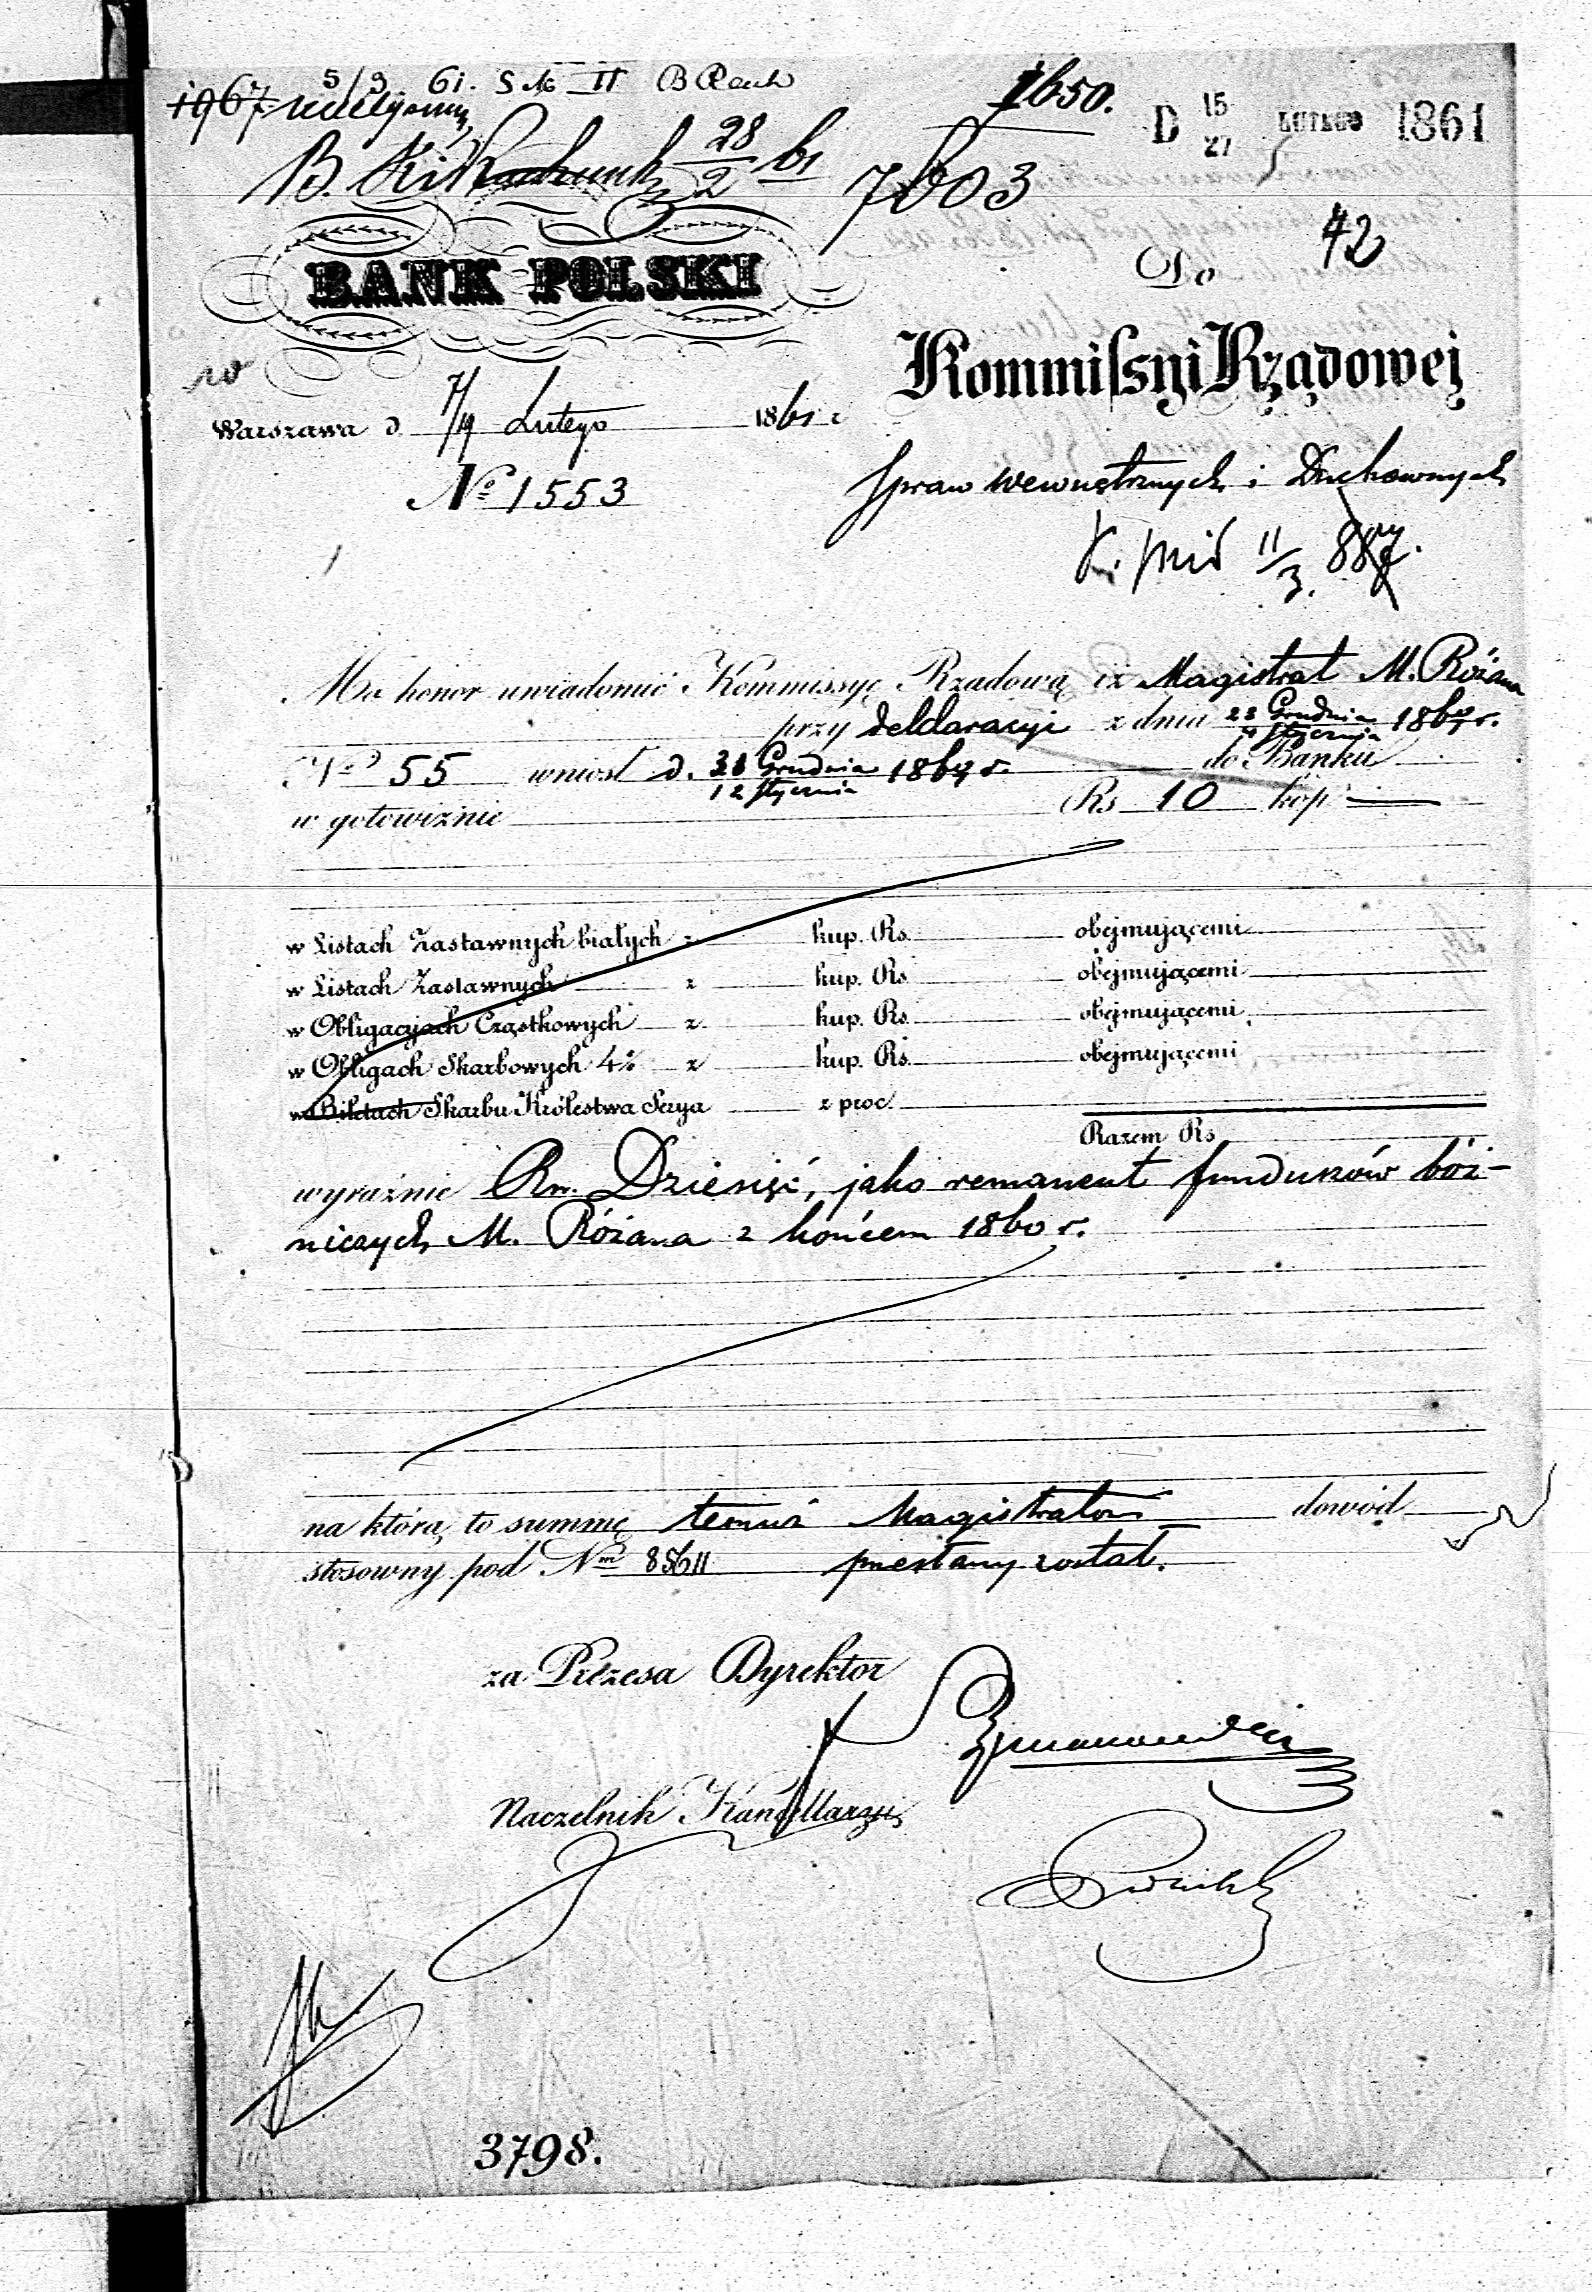 1967 5/3 61. 1650. D 15/27 LUTEGO 1861
28/2 61 7603
42
BANK POLSKI
Do
Kommissyi Rządowej
Warszawa d. 7/19 Lutego 1861 r.
Spraw Wewnętrznych i Duchownych
No 1553
11/3. 887.
Ma honor uwiadomić Kommissyę Rządową iż Magistrat M. Różana
przy deklaracyi z dnia 23 Grudnia / 4 Stycznia 1860/1 r.
No 55 wniósł d. 31 Grudnia / 12 Stycznia 1860/1 r. do Banku
w gotowiźnie Rs 10 kop —
w Listach Zastawnych białych z kup. Rs. obejmującemi
w Listach Zastawnych z kup. Rs. obejmującemi
w Obligacyach Cząstkowych z kup. Rs. obejmującemi
w Obligach Skarbowych 4% z kup. Rs. obejmującemi
w Biletach Skarbu Królestwa Serya z proc.
Razem Rs.
wyraźnie Rs. Dziesięć, jako remanent funduszów bóż-
niczych M. Różana z końcem 1860 r.
na którą to summę temuż Magistratowi dowód
stosowny pod Nm 85611 przesłany został.
za Prezesa Dyrektor
Naczelnik Kancellaryi
3798.